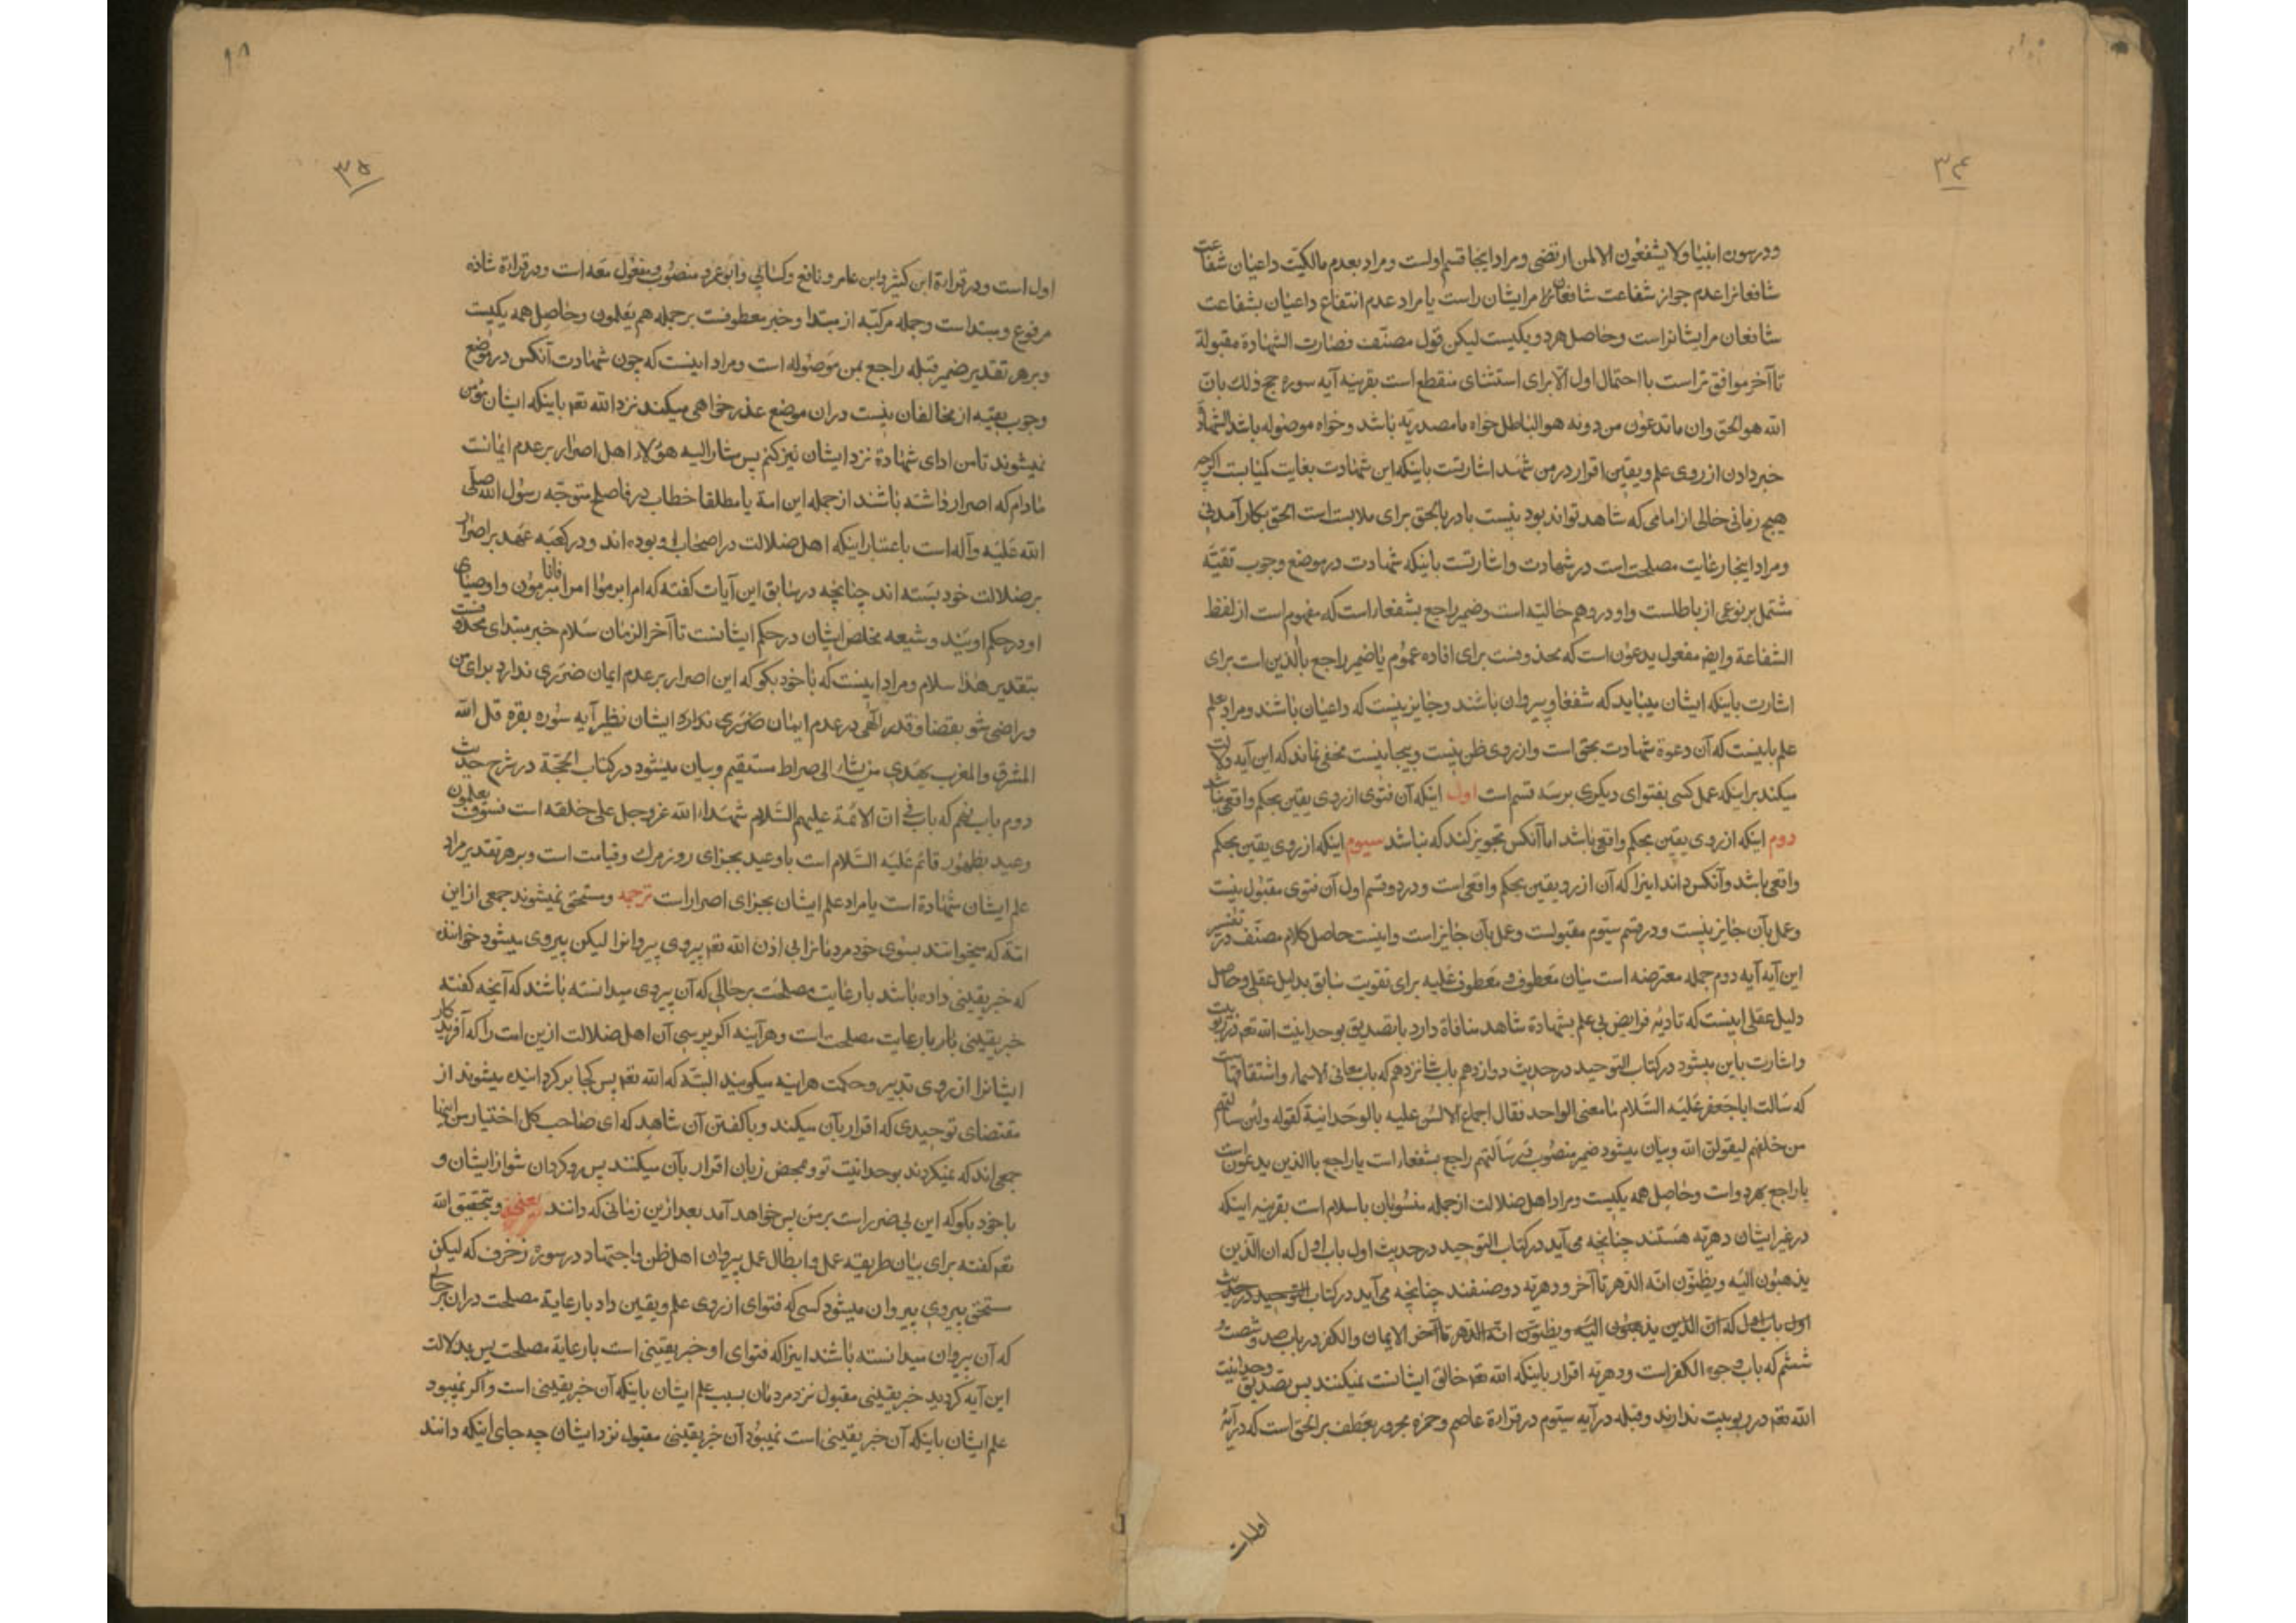 ۳۴
ودرسوره انبیا ولا یشفعون الا لمن ارتضی ومراد اینجا قسم اولست ومراد بعدم مالکیت داعیان شفاعت
شافعانرا عدم جواز شفاعت شافعان مرایشان راست یا مراد عدم انتفاع داعیان بشفاعت
شافعان مرایشانراست وحاصل هردو یکیست لیکن قول مصنّف فصارت الشهادة مقبولة
تا آخر موافق تراست با احتمال اول الّا برای استثنای منقطع است بقرینه آیه سوره حج ذلك بانّ
الله هو الحق وان ما تدعون من دونه هو الباطل خواه ما مصدریّه باشد وخواه موصوله باشد الشهادة
خبر دادن از روی علم ویقین اقرار در من شهد اشارتست باینکه این شهادت بغایت کمیابست اگرچه
هیچ زمانی خالی از امامی که شاهد تواند بود نیست با در بالحق برای ملابست است الحق بکار آمدنی
ومراد اینجا رعایت مصلحت است در شهادت واشارتست باینکه شهادت در موضع وجوب تقیّه
مشتمل بر نوعی از باطلست واو در وهم حالیّه است وضمیر راجع بشفعا راست که مفهوم است از لفظ
الشفاعة وایضا مفعول یدعون است که محذوفست برای افاده عموم یا ضمیر راجع بالّذین است برای
اشارت باینکه ایشان میباید که شفعا وپیروان باشند وجایز نیست که داعیان باشند ومراد بعلم
علم باینست که آن دعوة شهادت بحق است واز روی ظن نیست وبیجا نیست مخفی نماند که این آیه دلالت
میکند براینکه عمل کسی بفتوای دیگری برسه قسم است اول اینکه آن فتوی از روی یقین بحکم واقعی نباشد
دوم اینکه از روی یقین بحکم واقعی باشد اما آنکس تجویز کند که نباشد سیوم اینکه از روی یقین بحکم
واقعی باشد وآنکس داند اینرا که آن از روی یقین بحکم واقعی است ودر دو قسم اول آن فتوی مقبول نیست
وعمل بآن جایز نیست ودر قسم سیوم مقبولست وعمل بآن جایز است واینست حاصل کلام مصنّف در تفسیر
این آیه آیه دوم جمله معترضه است میان معطوف ومعطوف علیه برای تقویت سابق بدلیل عقلی وحاصل
دلیل عقلی اینست که تادیه فرایض بی علم بشهادة شاهد منافاة دارد با تصدیق بوحدانیت الله تعم در ربوبیت
واشارت باین میشود در کتاب التوحید در حدیث دوازدهم باب شانزدهم که باب معانی الاسماء واشتقاقها است
که سالت ابا جعفر علیه السّلام ما معنی الواحد فقال اجماع الالسن علیه بالوحدانیة کقوله ولئن سالتهم
من خلقهم لیقولن الله وبیان میشود ضمیر منصوب در سالتهم راجع بشفعا است یا راجع باالذین یدعون است
یا راجع بهردو است وحاصل همه یکیست ومراد اهل ضلالت از جمله منسوبان باسلام است بقرینه اینکه
در غیر ایشان دهریّه هستند چنانچه می آید در کتاب التوحید در حدیث اول باب اول که ان الّذین
یذهبون الیه ویظنّون انّه الدّهر تا آخر ودهریّه دو صنفند چنانچه می آید در کتاب التوحید در حدیث
اول باب اول که انّ الذین یذهبون الیه ویظنون انّه الدّهر تا آخر الایمان والکفر در باب صد وشصت و
ششم که باب وجوه الکفر است ودهریّه اقرار باینکه الله تعم خالق ایشانست نمیکنند پس تصدیق وحدانیت
الله تعم در ربوبیت ندارند وقیله در آیه سیوم در قراءة عاصم وحمزه مجرور بعطف بر الحق است که در آیهٔ
اولست
۳۵
اول است ودر قراءة ابن کثیر وابن عامر ونافع وکسائی وابو عمرو منصوب ومفعول معه است ودر قراءة شاذه
مرفوع ومبتداست وجمله مرکبه از مبتدا وخبر معطوفست بر جمله هم یعلمون وحاصل همه یکیست
وبرهر تقدیر ضمیر قیله راجع بمن موصوله است ومراد اینست که چون شهادت آنکس در موضع
وجوب تقیّه از مخالفان نیست دران موضع عذر خواهی میکند نزد الله تعم باینکه ایشان مؤمن
نمیشوند تا من ادای شهادة نزد ایشان نیز کنم پس مشارالیه هؤلاء اهل اصرار بر عدم ایمانست
مادام که اصرار داشته باشند از جمله این امة یا مطلقا خطاب در فاصفح متوجّه رسول الله صلّی
الله علیه وآله است باعتبار اینکه اهل ضلالت در اصحاب او بوده اند ودر کعبه عهد بر اصرار
بر ضلالت خود بسته اند چنانچه در سابق این آیات گفته که ام ابرموا امرا فانا مبرمون واوصیای
او در حکم اویند وشیعه مخلص ایشان در حکم ایشانست تا آخر الزمان سلام خبر مبتدای محذوفست
بتقدیر هذا سلام ومراد اینست که با خود بگو که این اصرار بر عدم ایمان ضرری ندارد برای من
وراضی شو بقضا وقدر الٓهی در عدم ایمان ضرری ندارد ایشان نظیر آیه سوره بقره قل الله
المشرق والمغرب یهدی من یشاء الی صراط مستقیم وبیان میشود در کتاب الحجّة در شرح حدیث
دوم باب نهم که باب فی ان الائمة علیهم السّلام شهداء الله عزوجل علی خلقه است فسوف یعلمون
وعید بظهور قائم علیه السّلام است یا وعید بجزای روز مرك وقیامت است وبرهر تقدیر مراد
علم ایشان شهادة است یا مراد علم ایشان بجزای اصرار است ترجمه ومستحق نمیشوند جمعی از این
امّة که میخوانند بسوی خود مردمانرا بی اذن الله تعم پیروی پیروانرا لیکن پیروی میشود خوانند
که خبر یقینی داده باشد با رعایت مصلحت بر حالی که آن پیروی میدانسته باشد که آنچه گفته
خبر یقینی با رعایت مصلحت است وهر آینه اگر پرسی آن اهل ضلالت ازین امت را که آفرید
ایشانرا از روی تدبیر وحکمت هر اینه میگویند البتّه که الله تعم پس کجا برگردانیده میشوند از
مقتضای توحیدی که اقرار بآن میکنند وبا گفتن آن شاهد که ای صاحب کل اختیار من اینها
جمعی اند که نمیگروند بوحدانیت تو ومحض زبان اقرار بآن میکنند پس رو گردان شو از ایشان و
با خود بگو که این بی ضرر است بر من پس خواهد آمد بعد ازین زمانی که دانند یعنی وبتحقیق الله
تعم گفته برای بیان طریقه عمل وابطال عمل پیروان اهل ظن واجتهاد در سوره زخرف که لیکن
مستحق پیروی پیروان میشود کسی که فتوای از روی علم ویقین داد با رعایة مصلحت دران بر حالی
که آن پیروان میدانسته باشند اینرا که فتوای او خبر یقینی است با رعایة مصلحت پس بدلالت
این آیه گردید خبر یقینی مقبول نزد مردمان بسبب علم ایشان باینکه آن خبر یقینی است واگر نمیبود
علم ایشان باینکه آن خبر یقینی است نمیبود آن خبر یقینی مقبول نزد ایشان چه جای اینکه دانند